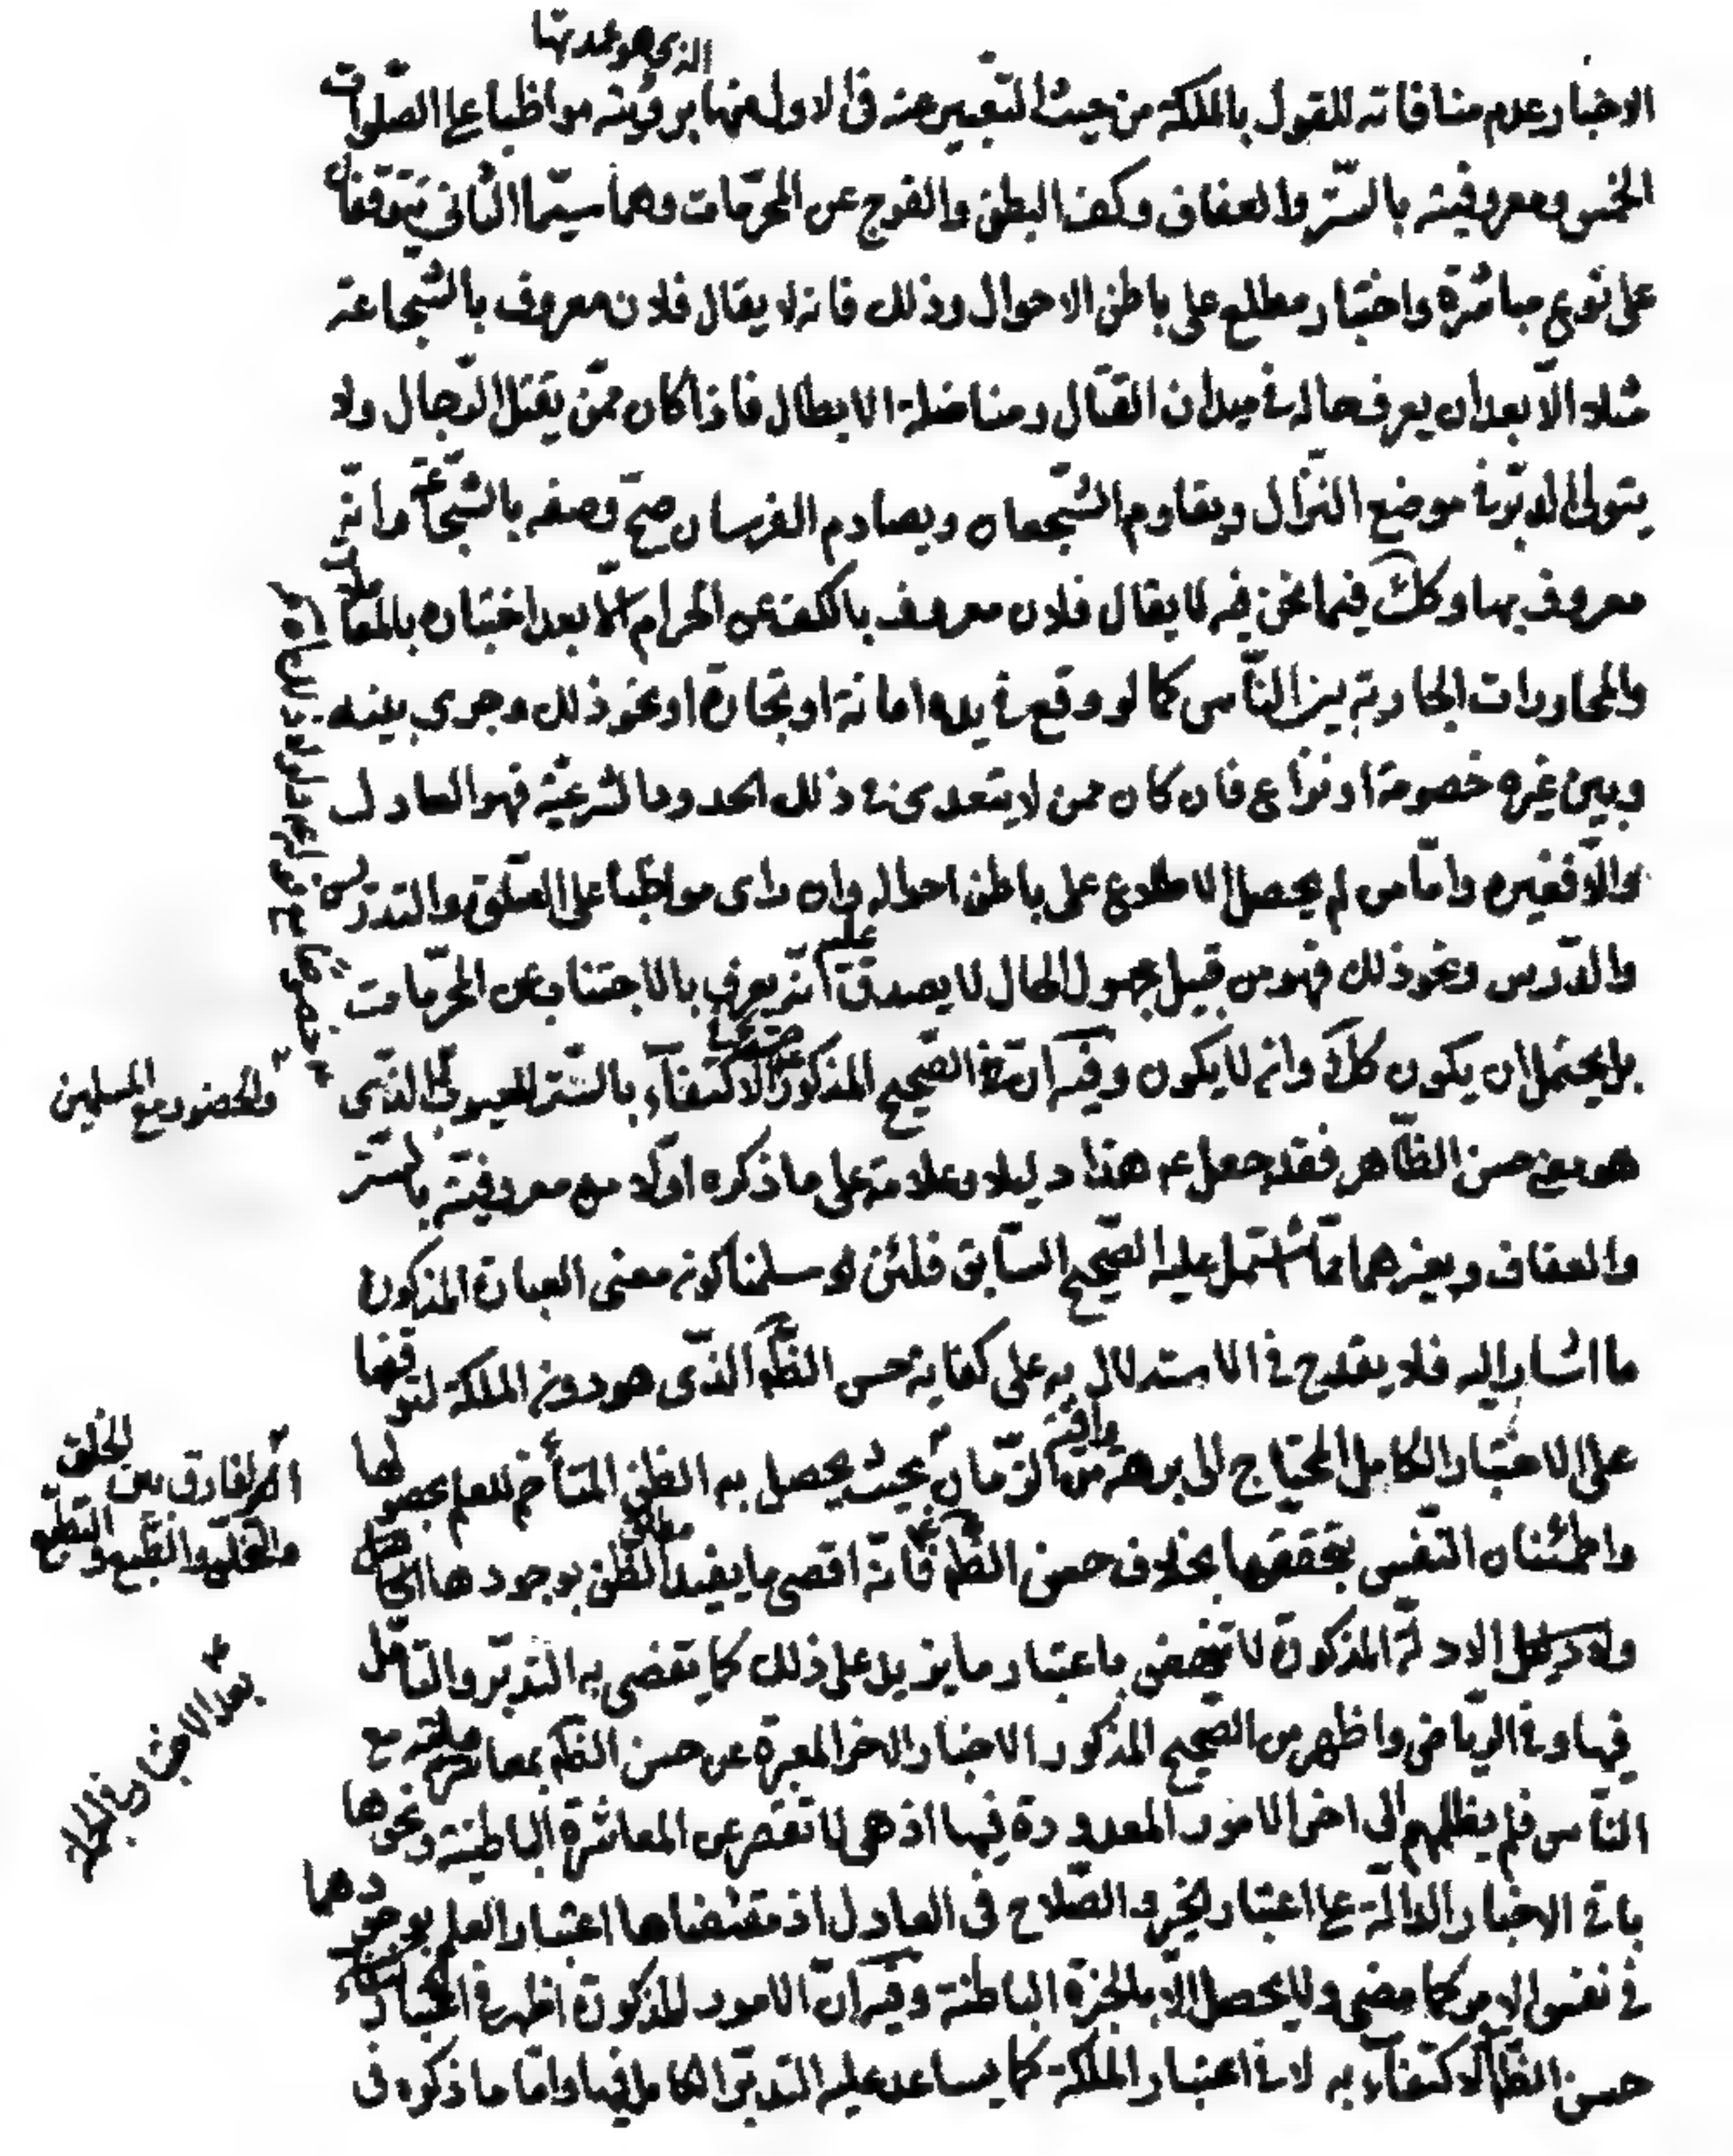 الذي هو عمدتها
الاخبار عدم منافاته للقول بالملكة من حيث التعبير عنه في الاول منها برؤيته مواظبا على الصلوات
الخمس ومعروفيته بالستر والعفاف وكف البطن والفرج عن المحرمات وهما سيّما الثاني يتوقفان
على نوع مباشرة واختبار مطلع على باطن الاحوال وذلك فانه لا يقال فلان معروف بالشجاعة
مثلا الّا بعد ان يعرف حاله في ميدان القتال ومناضلة الابطال فاذا كان ممّن يقتل الرّجال ولا
يتولى الدبر في موضع النزال ويقاوم الشّجعان ويصادم الفرسان صحّ وصفه بالشّجاعة وانّه
معروف بها وكك فيما نحن فيه لا يقال فلان معروف بالكف عن الحرام الّا بعد اختباره بالمعاملات
والمحاورات الجارية بين النّاس كما لو وقع في يده امانة او تجارة او نحو ذلك وجرى بينه
وبين غيره خصومة او نزاع فان كان ممن لا يتعدى في ذلك الحدود الشرعيّة فهو العادل
والّا فغيره وامّا من لم يحصل الاطلاع على باطن احواله وان راى مواظبا على الصلوة والتدريس
والدّرس ونحو ذلك فهو من قبيل مجهول الحال لا يصدق عليه انّه يعرف بالاجتناب عن المحرّمات
بل يحتمل ان يكون كك وان لا يكون وفيه ان في الصّحيح المذكور الاكتفاء بالستر للعيوب الذي
والحضور مع المسلمين
هو معنى حسن الظّاهر فقد جعل ع هذا دليلا وعلامة على ما ذكره اوّلا من معروفيته بالستر
والعفاف وغيرهما ممّا اشتمل عليه الصّحيح السّابق فلئن سلمنا كونه معنى العبارة المذكورة
ما اشار اليه فلا يقدح في الاستدلال به على كفاية حسن الظّم الذّى هو دون الملكة لتوقفها
على الاختبار الكامل المحتاج الى برهة من الزّمان بحيث يحصل به الظن المتأخم للعلم بحصولها
وافية
الفارق بين الخلق والتخلق والطّبع والتطبّع
واطمئنان النّفس بتحققها بخلاف حسن الظّم فانّه اقصى ما يفيد مطلق الظّن بوجودها
الادلة المذكورة لا باعتبار ما يزيد على ذلك كما يقضى به التدبّر والتأمّل
بعد الاختبار في الجملة
فيها وفي الرّياض واظهر من الصّحيح المذكور الاخبار الاخر المعبرة عن حسن الظّم بمعاملته مع
النّاس فلم يظلمهم الى اخر الامور المعدودة فيها اذ هي لا تقصر عن المعاشرة الباطنيّة ونحوها
باقي الاخبار الدالّة على اعتبار الخير والصّلاح في العادل اذ مقتضاها اعتبار العلم بوجودها
في نفس الامر كما مضى ولا يحصل الّا بالخبرة الباطنة وفيه انّ الامور المذكورة اظهر في اعتبار
حسن الظّم والاكتفاء به لا في اعتبار الملكة كما يساعد عليه التدبّر الكامل فيها وامّا ما ذكره في